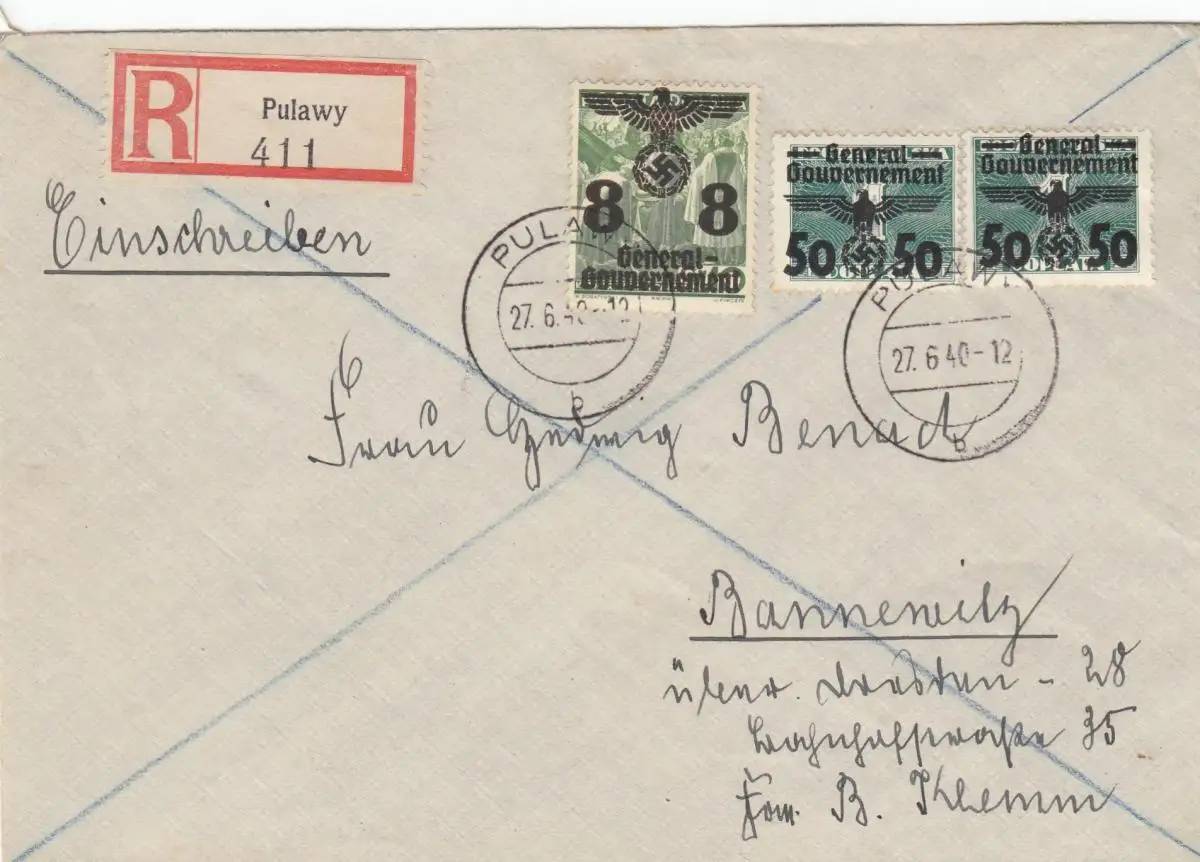 R
Pulawy
411
Einschreiben
8 8
General-
Gouvernement
General
Gouvernement
50 50
General
Gouvernement
50 50
PULAWY
27. 6. 40-12
b
PULAWY
27. 6 40-12
b
Frau Hedwig Benack
Bannewitz
über Dresden - 28
Bahnhofstraße 35
B. Klemm